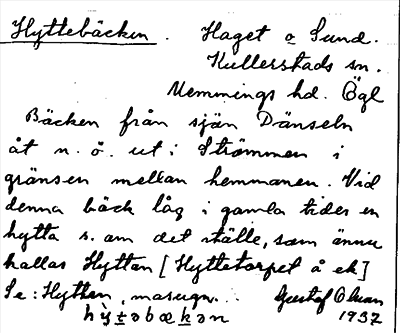 Hyttebäcken. Haget o Sund.
Kullerstads sn.
Memmings hd. Ögl
Bäcken från sjön Dänseln
åt n. ö. ut i Strömmen i
gränsen mellan hemmanen. Vid
denna bäck låg i gamla tider en
hytta s. om det ställe, som ännu
kallas Hyttan [Hyttetorpet å ek]
Se: Hyttan, masugn... Gustaf
1932